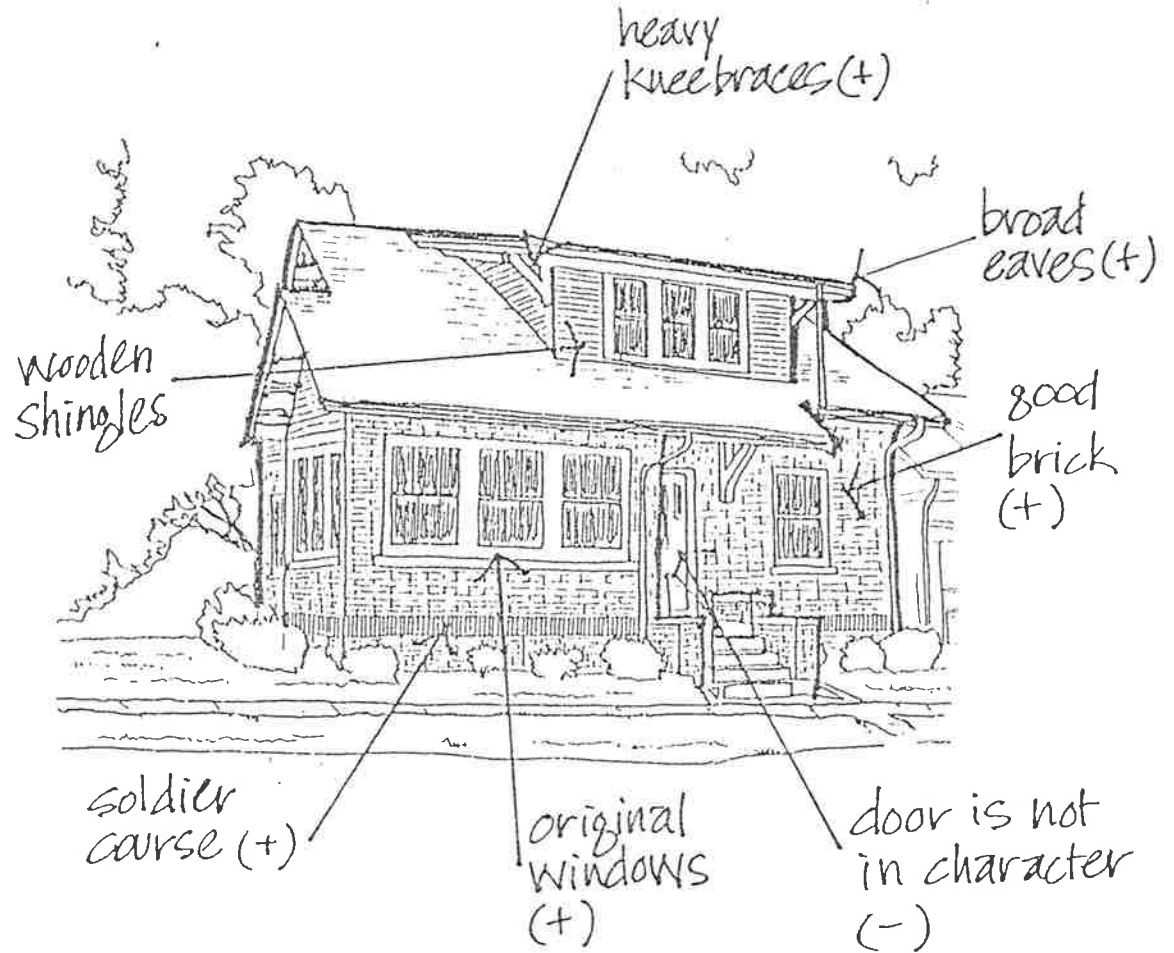 heavy
kneebraces (+)
broad
eaves (+)
wooden
shingles
good
brick
(+)
soldier
course (+)
original
windows
(+)
door is not
in character
(-)